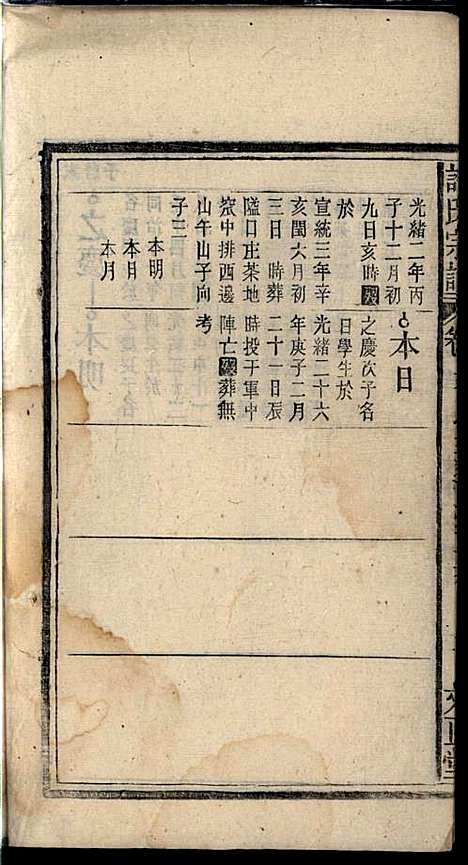 氏宗譜
卷
光緒二年丙
子十二月初
九日亥時歿
於
宣統三年辛
亥閏六月初
三日　時葬
隘口庄茶地
中排西邊
山午山子向
子三
本明
本日
本月
本日
之慶次子名
日學生於
光緒二十六
年庚子二月
二十一日張
時投于軍中
陣亡歿葬無
考